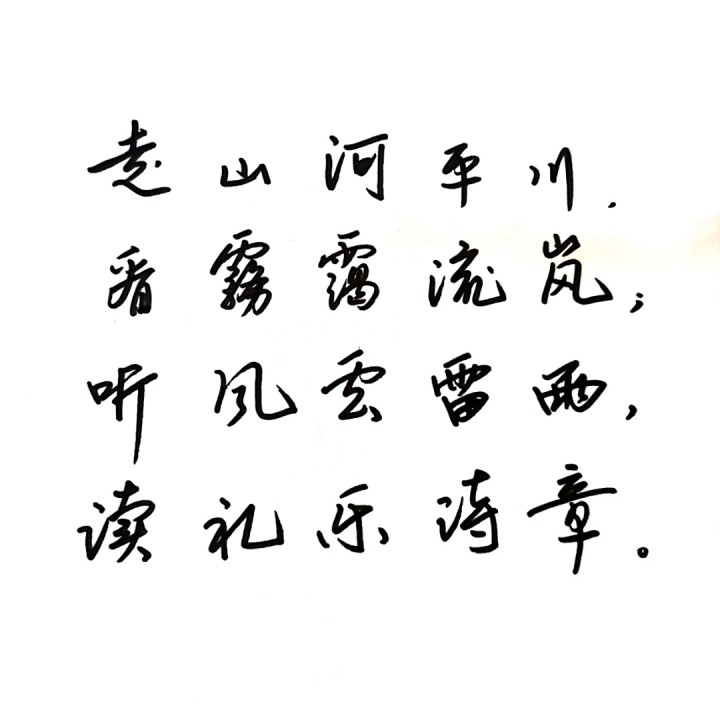 走山河平川.
看霧霭流岚;
听风雲雷雨,
读礼乐诗章。